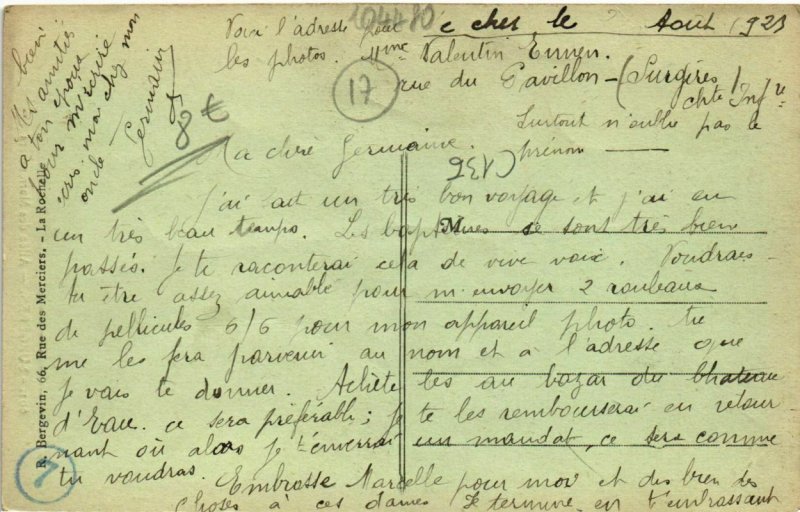 Voici l'adresse pour
les photos. Mme Valentin
rue du Pavillon - (Surgères)
chte Infre
Surtout n'oublie pas le
prénom
che, le Août 1923
104480
17
8 €
C136
Ma chère Germaine.
J'ai fait un très bon voyage et j'ai eu
un très beau temps. Les baptêmes se sont très bien
passés. Je te raconterai cela de vive voix. Voudrais-
tu être assez aimable pour m'envoyer 2 rouleaux
de pellicules 6/6 pour mon appareil photo. tu
me les fera parvenir au nom et à l'adresse que
je vais te donner. Achète les au bazar du Château
d'Eau. ce sera préférable; je te les rembourserai en retour
nant où alors je t'enverrai un mandat, ce sera comme
tu voudras. Embrasse Marcelle pour moi et des bien des
choses à ces dames Je termine en t'embrassant
bien
Les amitiés
à ton époux
pour m'écrire
écris moi chez mon
oncle
Germain
M
R. Bergevin, 66, Rue des Merciers. - La Rochelle
7